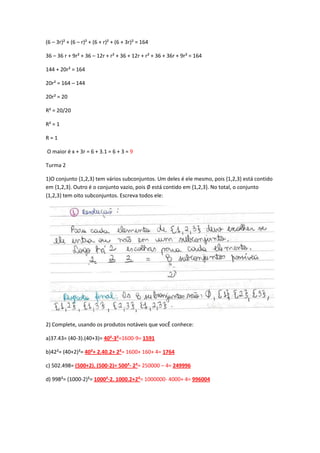 (6 – 3r)² + (6 – r)² + (6 + r)² + (6 + 3r)² = 164
36 – 36 r + 9r² + 36 – 12r + r² + 36 + 12r + r² + 36 + 36r + 9r² = 164
144 + 20r² = 164
20r² = 164 – 144
20r² = 20
R² = 20/20
R² = 1
R = 1
O maior é x + 3r = 6 + 3.1 = 6 + 3 = 9
Turma 2
1)O conjunto {1,2,3} tem vários subconjuntos. Um deles é ele mesmo, pois {1,2,3} está contido
em {1,2,3}. Outro é o conjunto vazio, pois Ø está contido em {1,2,3}. No total, o conjunto
{1,2,3} tem oito subconjuntos. Escreva todos ele:
① Resolução:
Para cada elemento de {1,2,3} devo escolher se
ele entra ou não em um subconjunto.
Logo há 2 escolhas para cada elemento.
2 2 2 = 8 subconjuntos possíveis
2³
Resposta final: Os 8 subconjuntos são: Ø, {1} {2}, {3},
{1,2}, {1,3}, {2,3}, {1,2,3}.
2) Complete, usando os produtos notáveis que você conhece:
a)37.43= (40-3).(40+3)= 40²-3²=1600-9= 1591
b)42²= (40+2)²= 40²+ 2.40.2+ 2²= 1600+ 160+ 4= 1764
c) 502.498= (500+2). (500-2)= 500²- 2²= 250000 – 4= 249996
d) 998²= (1000-2)²= 1000²-2. 1000.2+2²= 1000000- 4000+ 4= 996004